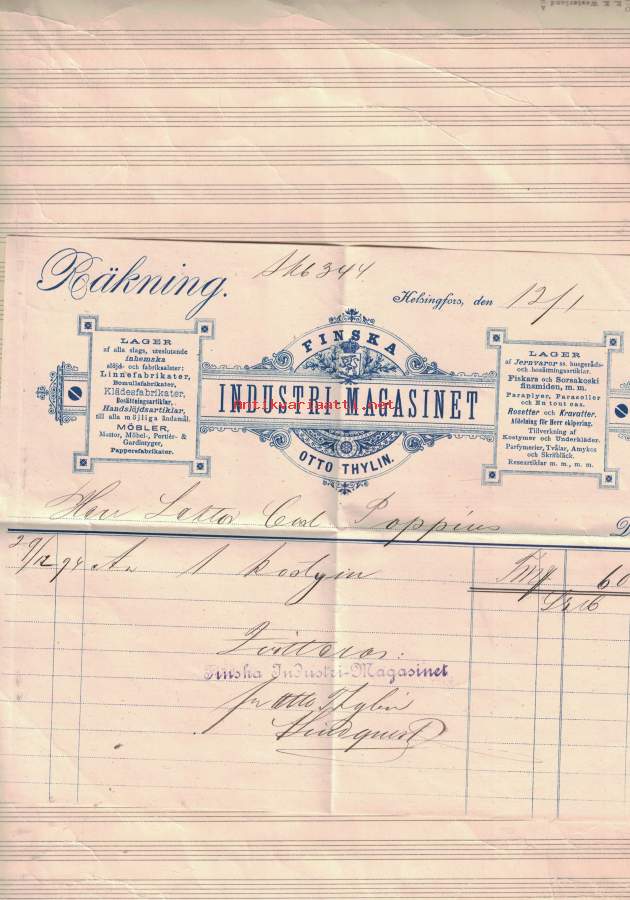 Räkning.
Helsingfors, den 12/1
LAGER
af alla slags, uteslutande
inhemska
slöjd- och fabriksalster:
Linnefabrikater,
Bomullsfabrikater,
Klädesfabrikater,
Beklädningsartiklar,
Handslöjdsartiklar,
till alla möjliga ändamål.
MÖBLER,
Mattor, Möbel-, Portiér- &
Gardintyger,
Pappersfabrikater.
FINSKA
INDUSTRI-MAGASINET
OTTO THYLIN.
antikvariaatti.net
LAGER
af Jernvaror ss. husgeråds-
och bosättningsartiklar.
Fiskars och Sorsakoski
finsmiden, m. m.
Paraplyer, Parasoller
och En tout cas.
Rosetter och Kravatter.
Afdelning för Herr ekipering.
Tillverkning af
Kostymer och Underkläder.
Parfymerier, Tvålar, Amykos
och Skrifbläck.
Researtiklar m. m., m. m.
Herr Lektor Carl Poppius
29/12 94 1 kostym Fmk 60
Qvitteras:
Finska Industri-Magasinet
Otto Thylin
Lindquist